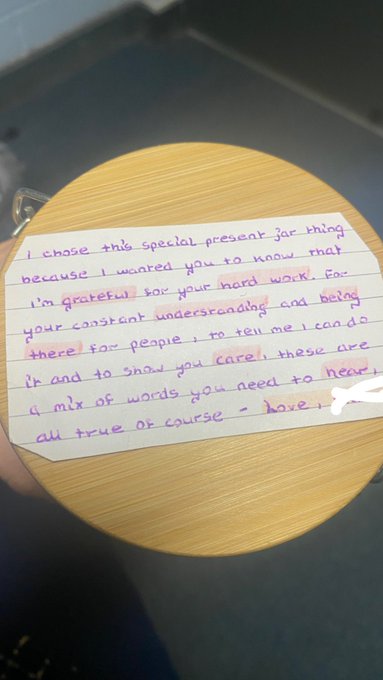 I chose this special present jar thing
because I wanted you to know that
I'm grateful for your hard work. For
your constant understanding and being
there for people, to tell me I can do
it and to show you care, these are
a mix of words you need to hear,
all true of course - Love,